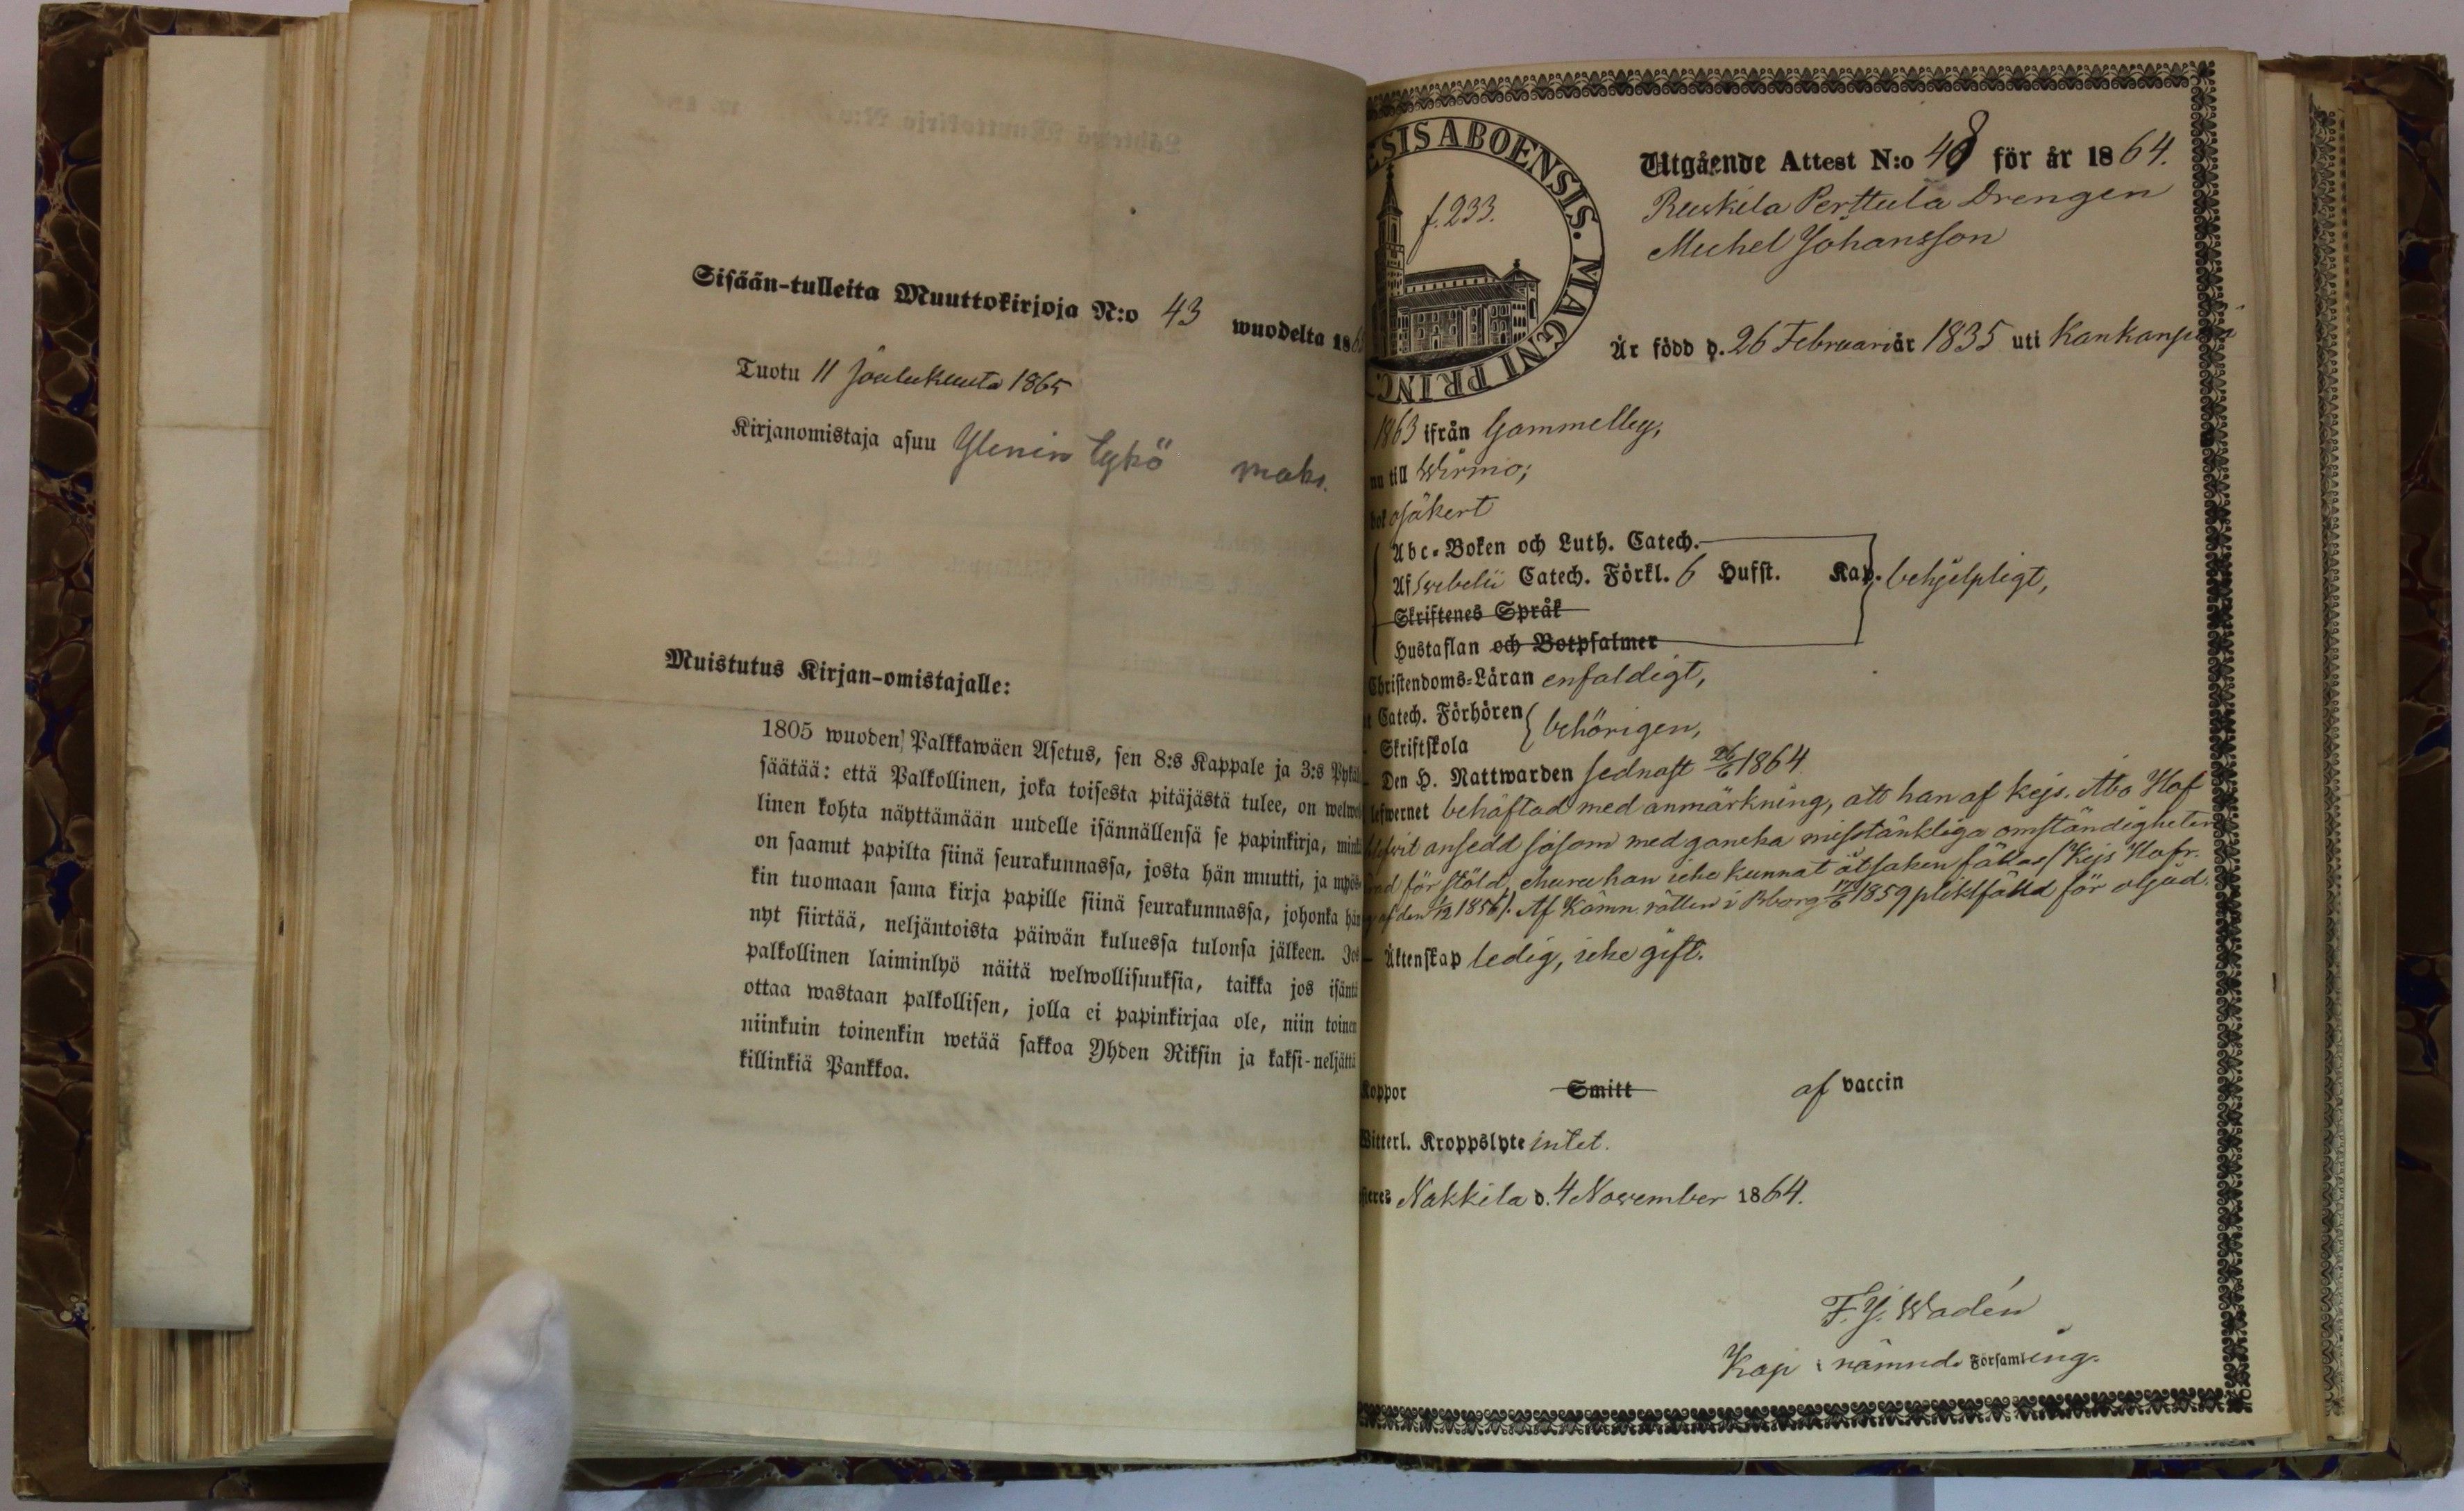 Sisään-tulleita Muuttokirjoja N:o 43 wuodelta 186
Tuotu 11 Joulukuuta 1865
Kirjanomistaja asuu Ylenin Lyhö maks.
Muistutus Kirjan-omistajalle:
1805 wuoden Palkkawäen Asetus, sen 8:s Kappale ja 3:s Pykälä
säätää: että Palkollinen, joka toisesta pitäjästä tulee, on welwol
linen kohta näyttämään uudelle isännällensä se papinkirja, minkä
on saanut papilta siinä seurakunnassa, josta hän muutti, ja myös
kin tuomaan sama kirja papille siinä seurakunnassa, johonka hän
nyt siirtää, neljäntoista päiwän kuluessa tulonsa jälkeen. Jos
palkollinen laiminlyö näitä welwollisuuksia, taikka jos isäntä
ottaa wastaan palkollisen, jolla ei papinkirjaa ole, niin toinen
niinkuin toinenkin wetää sakkoa Yhden Riksin ja kaksi-neljättä
killinkiä Pankkoa.
ESIS ABOENSIS. MAGNI PRINC.
f. 233.
Utgående Attest N:o 48 för år 1864.
Ruskila Perttula Drengen
Michel Johansson
Är född d. 26 Februari år 1835 uti Kankanpää
1863 ifrån Gammelby,
nu till Wirmo;
bok osäkert
Abc-Boken och Luth. Catech.
Af Svebelii Catech. Förkl. 6 Hufst. Kap. behjelpligt,
Skriftenes Språk
Hustaflan och Botpsalmer
Christendoms-Läran enfaldigt,
Catech. Förhören
Skriftskola behörigen,
Den H. Nattwarden sednast 26/6 1864
lefwernet behäftad med anmärkning, att han af Kejs. Åbo Hof
blifvit ansedd såsom med ganska misstänkliga omständigheter
för stöld, ehuru han icke kunnat åt saken fällas (Kejs Hofr.
af den 1/12 1856). Af Kämn. rätten i Bborg 17/6 1859 pliktfälld för oljud.
Äktenskap ledig, icke gift.
Koppor Smitt af vaccin
Witterl. Kroppslyte intet.
Nakkila d. 4 November 1864.
F. J. Wadén
Kap i nämnd. Församling.